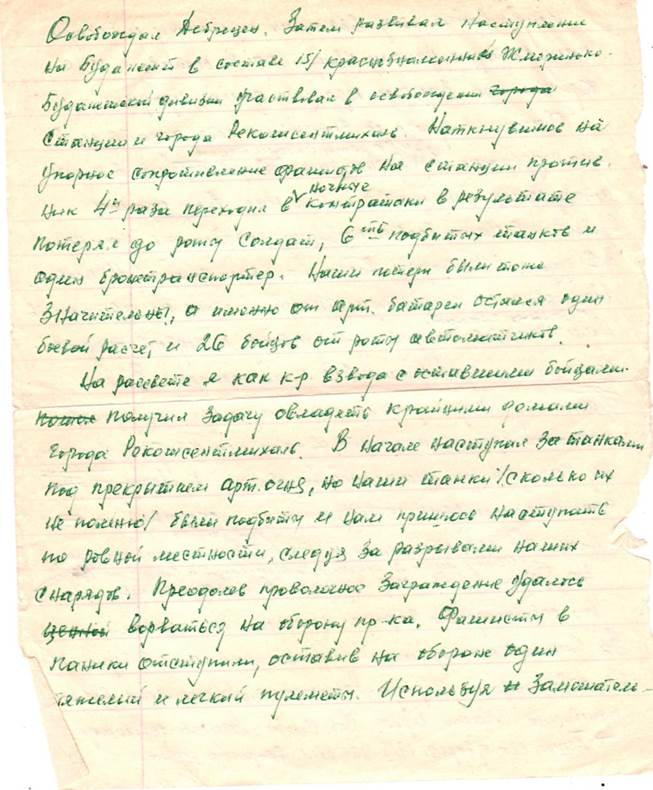 Освобождал Дебрецен. Затем развивал наступление
на Будапешт в составе 151 краснознаменной Жмеринко-
Будапештской дивизии участвовал в освобождении города
станции и города Рекошсентмихаль. Наткнувшись на
упорное сопротивление фашистов на станции против-
ник 4ы раза переходил в ночные контратаки в результате
потерял до роты солдат, 6ть подбитых танков и
один бронетранспортер. Наши потери были тоже
значительны, а именно от арт. батареи остался один
боевой расчет и 26 бойцов от роты автоматчиков.
На рассвете я как к-р взвода с оставшими бойцами
получил задачу овладеть крайними домами
города Рекошсентмихаль. В начале наступал за танками
под прекрытием арт.огня, но наши танки /сколько их
не помню/ были подбиты и нам пришлось наступать
по ровной местности, следуя за разрывами наших
снарядов. Преодолев проволочное заграждение удалось
ценой ворваться на оборону пр-ка. Фашисты в
панике отступили, оставив на обороне один
тяжелый и легкий пулеметы. Используя замешатель-